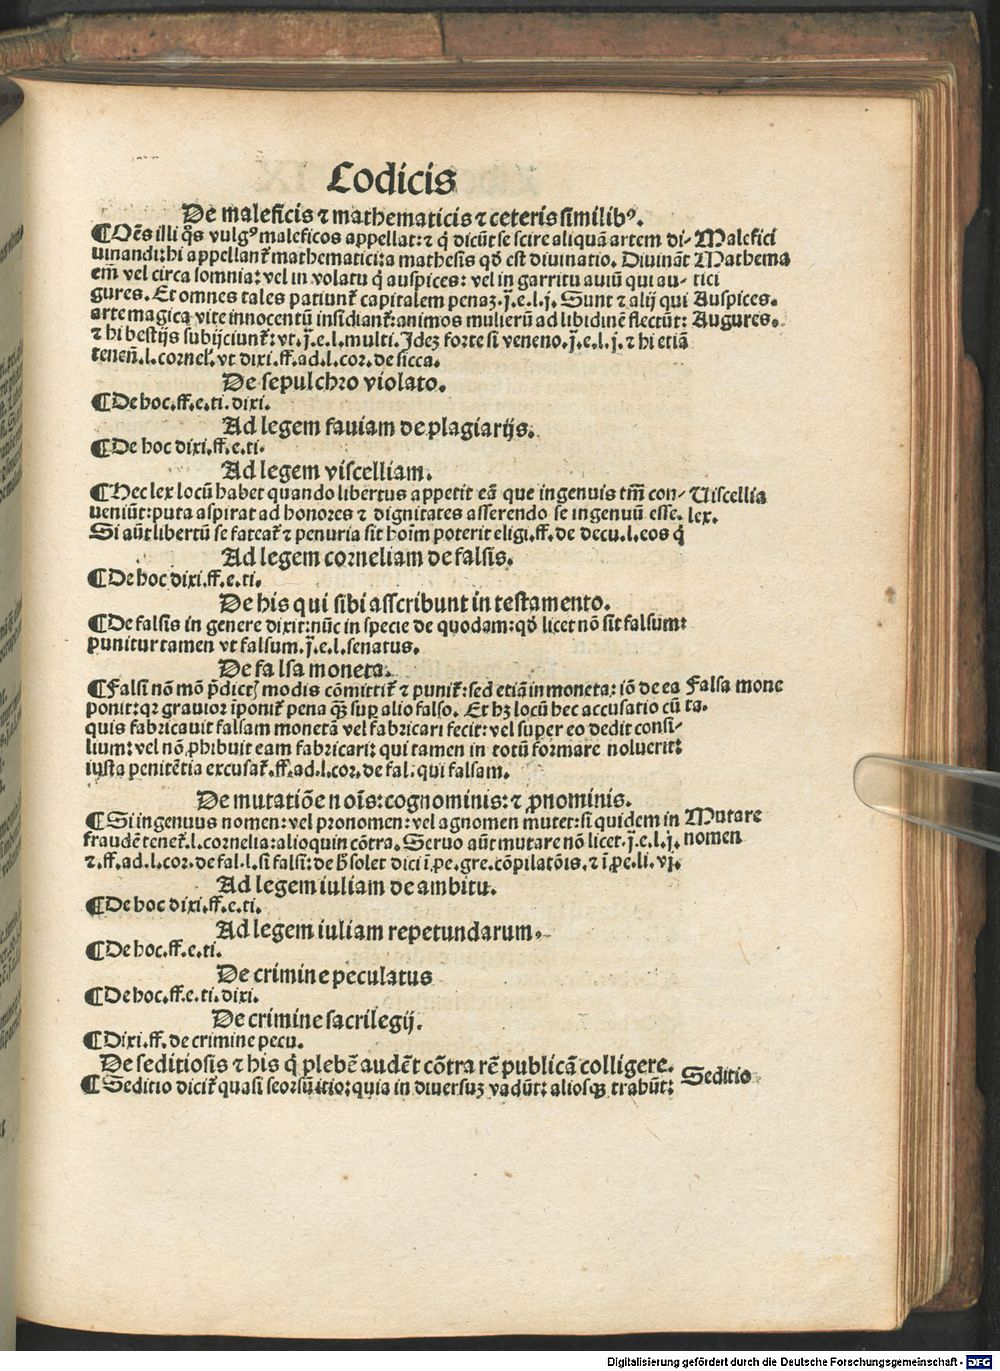 Codicis
De maleficis ⁊ mathematicis ⁊ ceteris similibꝰ.
¶Oēs illi q̄s vulgꝰ maleficos appellat: ⁊ q̇ dicūt se scire aliquā artem di- Malefici
uinandi: hi appellant̄ mathematici: a mathesis qḋ est diuinatio. Diuināt Mathema
em̄ vel circa somnia: vel in volatu q̇ auspices: vel in garritu auiū qui au- tici
gures. Et omnes tales patiunt̄ capitalem penaꝫ. j̄.e.l.j. Sunt ⁊ alij qui Auspices.
arte magica vite innocentū insidiant̄: animos mulierū ad libidinē flectūt: Augures.
⁊ hi bestijs subijciunt̄: vt. j̄.e.l.multi. Ideꝫ forte si veneno. j̄.e.l.j. ⁊ hi etiā
tenen̄.l.cornel̄. vt dixi.ff.ad.l.cor.de sicca.
De sepulchro violato.
¶De hoc.ff.e.ti.dixi.
Ad legem fauiam de plagiarijs.
¶De hoc dixi.ff.e.ti.
Ad legem viscelliam.
¶Hec lex locū habet quando libertus appetit eā que ingenuis tm̄ con- Uiscellia
ueniūt: puta aspirat ad honores ⁊ dignitates asserendo se ingenuū esse. lex.
Si aūt libertū se fateat̄ ⁊ penuria sit hoīm poterit eligi.ff.de decu.l.eos q̇
Ad legem corneliam de falsis.
¶De hoc dixi.ff.e.ti.
De his qui sibi asscribunt in testamento.
¶De falsis in genere dixit: nūc in specie de quodam: qḋ licet nō sit falsum:
punitur tamen vt falsum. j̄.e.l.senatus.
De falsa moneta.
¶Falsi nō mō p̄dictꝭ modis cōmittit̄ ⁊ punit̄: sed etiā in moneta: iō de ea Falsa mone
ponit: qꝛ grauior īponit̄ pena qꝫ̄ suꝑ alio falso. Et hꝫ locū hec accusatio cū ta.
quis fabricauit falsam monetā vel fabricari fecit: vel super eo dedit consi-
lium: vel nō ꝓhibuit eam fabricari: qui tamen in totū formare noluerit:
iusta penitētia excusat̄.ff.ad.l.cor.de fal. qui falsam.
De mutatiōe noīs: cognominis: ⁊ ꝓnominis.
¶Si ingenuus nomen: vel pronomen: vel agnomen mutet: si quidem in Mutare
fraudē tenet̄.l.cornelia: alioquin cōtra. Seruo aūt mutare nō licet. j̄.e.l.j. nomen
⁊.ff.ad.l.cor.de fal.l.si falsi: de h̄ solet dici ī ꝓe.gre.cōpilatōis. ⁊ ī ꝓe.li.vj.
Ad legem iuliam de ambitu.
¶De hoc dixi.ff.e.ti.
Ad legem iuliam repetundarum.
¶De hoc.ff.e.ti.
De crimine peculatus
¶De hoc.ff.e.ti.dixi.
De crimine sacrilegij.
¶Dixi.ff.de crimine pecu.
De seditiosis ⁊ his q̇ plebē audēt cōtra rē publicā colligere.
¶Seditio dicit̄ quasi seorsū itio: quia in diuersuꝫ vadūt: aliosqꝫ trahūt: Seditio
Digitalisierung gefördert durch die Deutsche Forschungsgemeinschaft - DFG